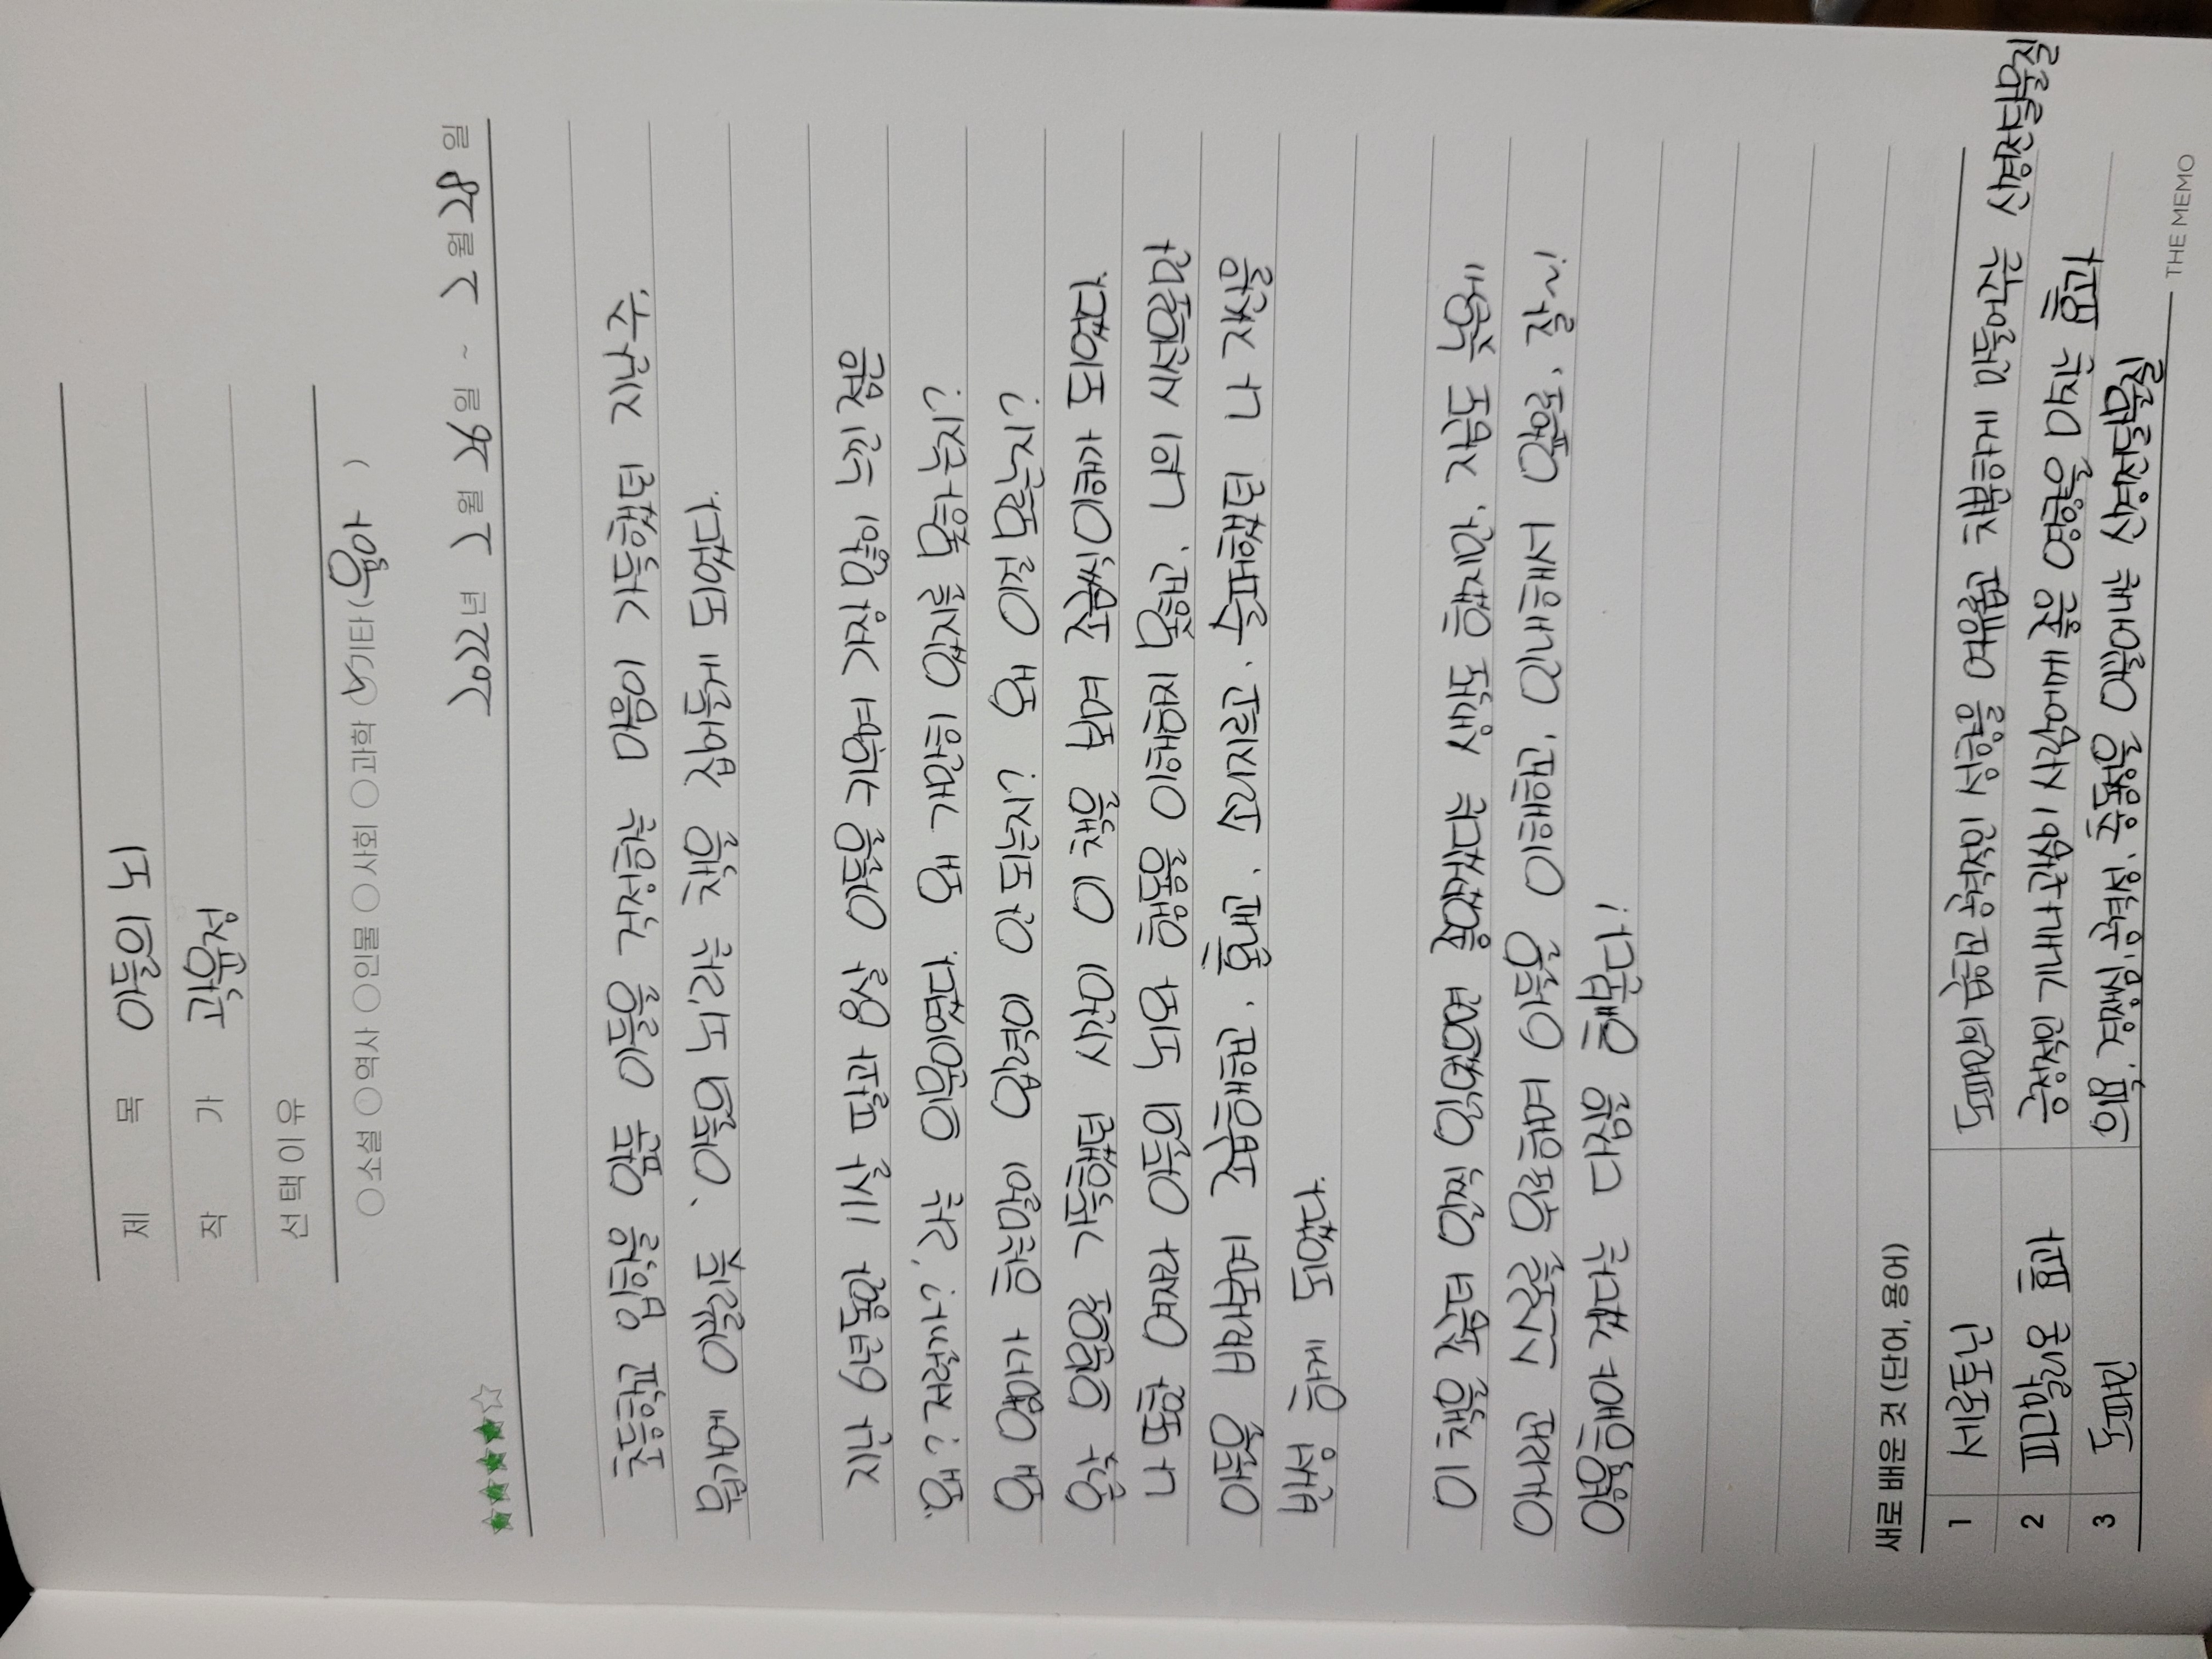 제 목 아들의 뇌
작 가 곽윤정
선택이유
소설 역사 인물 사회 과학 기타 (육아 )
2022년 2월 26일 ~ 2월 28일
초등학교 입학을 앞둔 아들을 걱정하는 마음이 가득했던 지난 주,
뭔가에 이끌리듯 '아들의 뇌'라는 책을 집어들게 되었다.
지난 6년동안 11살 딸과 8살 아들을 키우며 가장 많이 느낀 점은
'왜? 저럴까?'라는 의문이였다. 왜 가만히 있지를 못하는지?
왜 엄마가 하는말이 입력이 안 되는지? 왜 이걸 모르는지?
온갖 의문으로 가득했던 시간이 이 책을 보며 조금씩 이해가 되었다.
나 또한 여자라 아들의 뇌와 행동을 이해하지 못하고, 나의 시선으로만
아들을 바라보며 조급해하고, 혼내고, 소리지르고, 슬퍼했던 나 자신을
반성 하게 되었다.
이 책을 조금더 일찍 읽었으면 좋았겠다는 생각도 했지만, 지금도 늦은게
아니라고 스스로를 위로하며 아들을 이해하고, 인내해서 앞으로, 잘~!
양육해야 겠다는 다짐을 해본다!
새로 배운 것 (단어, 용어)
1 세로토닌 도파민의 급하고 공격적인 성향을 여유롭고 차분하게 만들어주는 신경전달물질
2 피그말리온 효과 긍정적인 기대나 관심이 사람에게 좋은 영향을 미치는 효과
3 도파민 의욕, 경쟁심, 공격성, 충동성을 이끌어내는 신경전달물질
THE MEMO